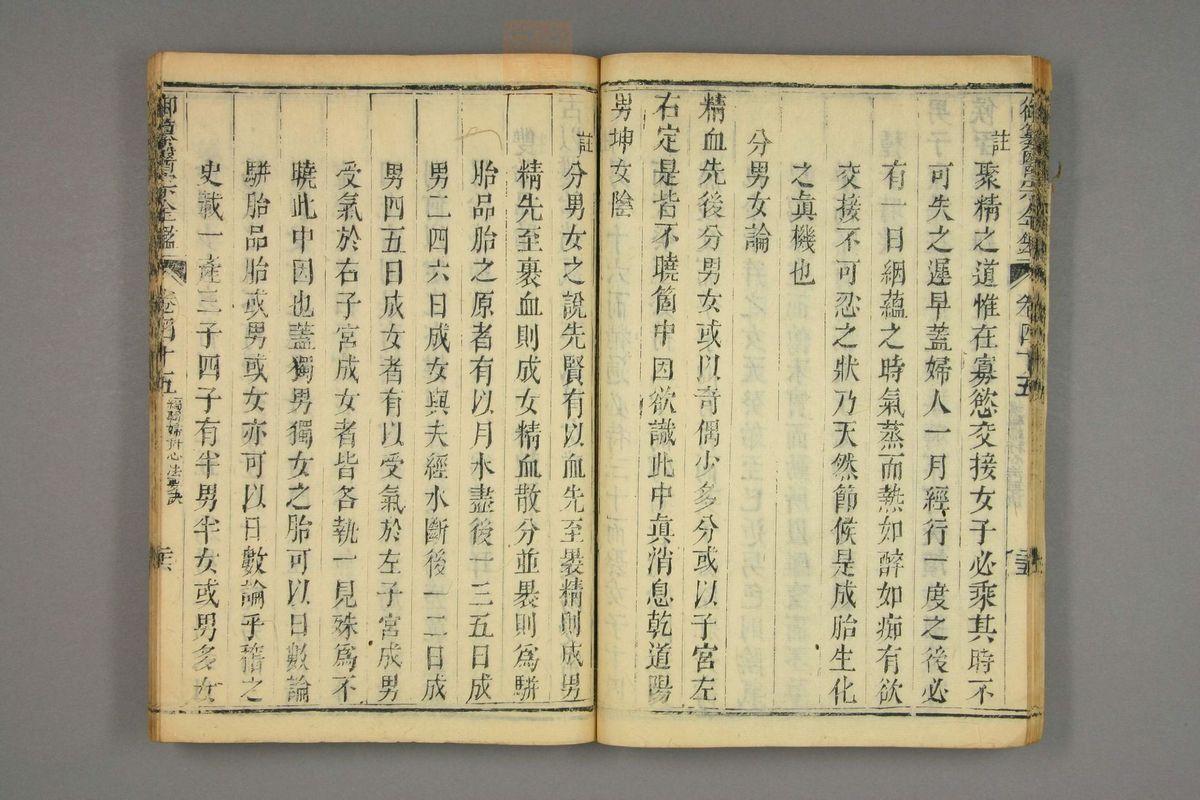 御纂醫宗金鑑
卷四十五
註
聚精之道惟在寡慾交接女子必乘其時不
可失之遲早蓋婦人一月經行一度之後必
有一日絪蘊之時氣蒸而熱如醉如痴有欲
交接不可忍之狀乃天然節候是成胎生化
之眞機也
分男女論
精血先後分男女或以奇偶少多分或以子宮左
右定是皆不曉箇中因欲識此中眞消息乾道陽
男坤女陰
註
分男女之說先賢有以血先至裹精則成男
精先至裹血則成女精血散分並裹則爲駢
胎品胎之原者有以月水盡後一三五日成
男二四六日成女與夫經水斷後一二日成
男四五日成女者有以受氣於左子宮成男
受氣於右子宮成女者皆各執一見殊爲不
曉此中因也蓋獨男獨女之胎可以日數論
駢胎品胎或男或女亦可以日數論乎稽之
史載一產三子四子有半男半女或男多女
御纂醫宗金鑑
卷四十五
編輯婦科心法要訣